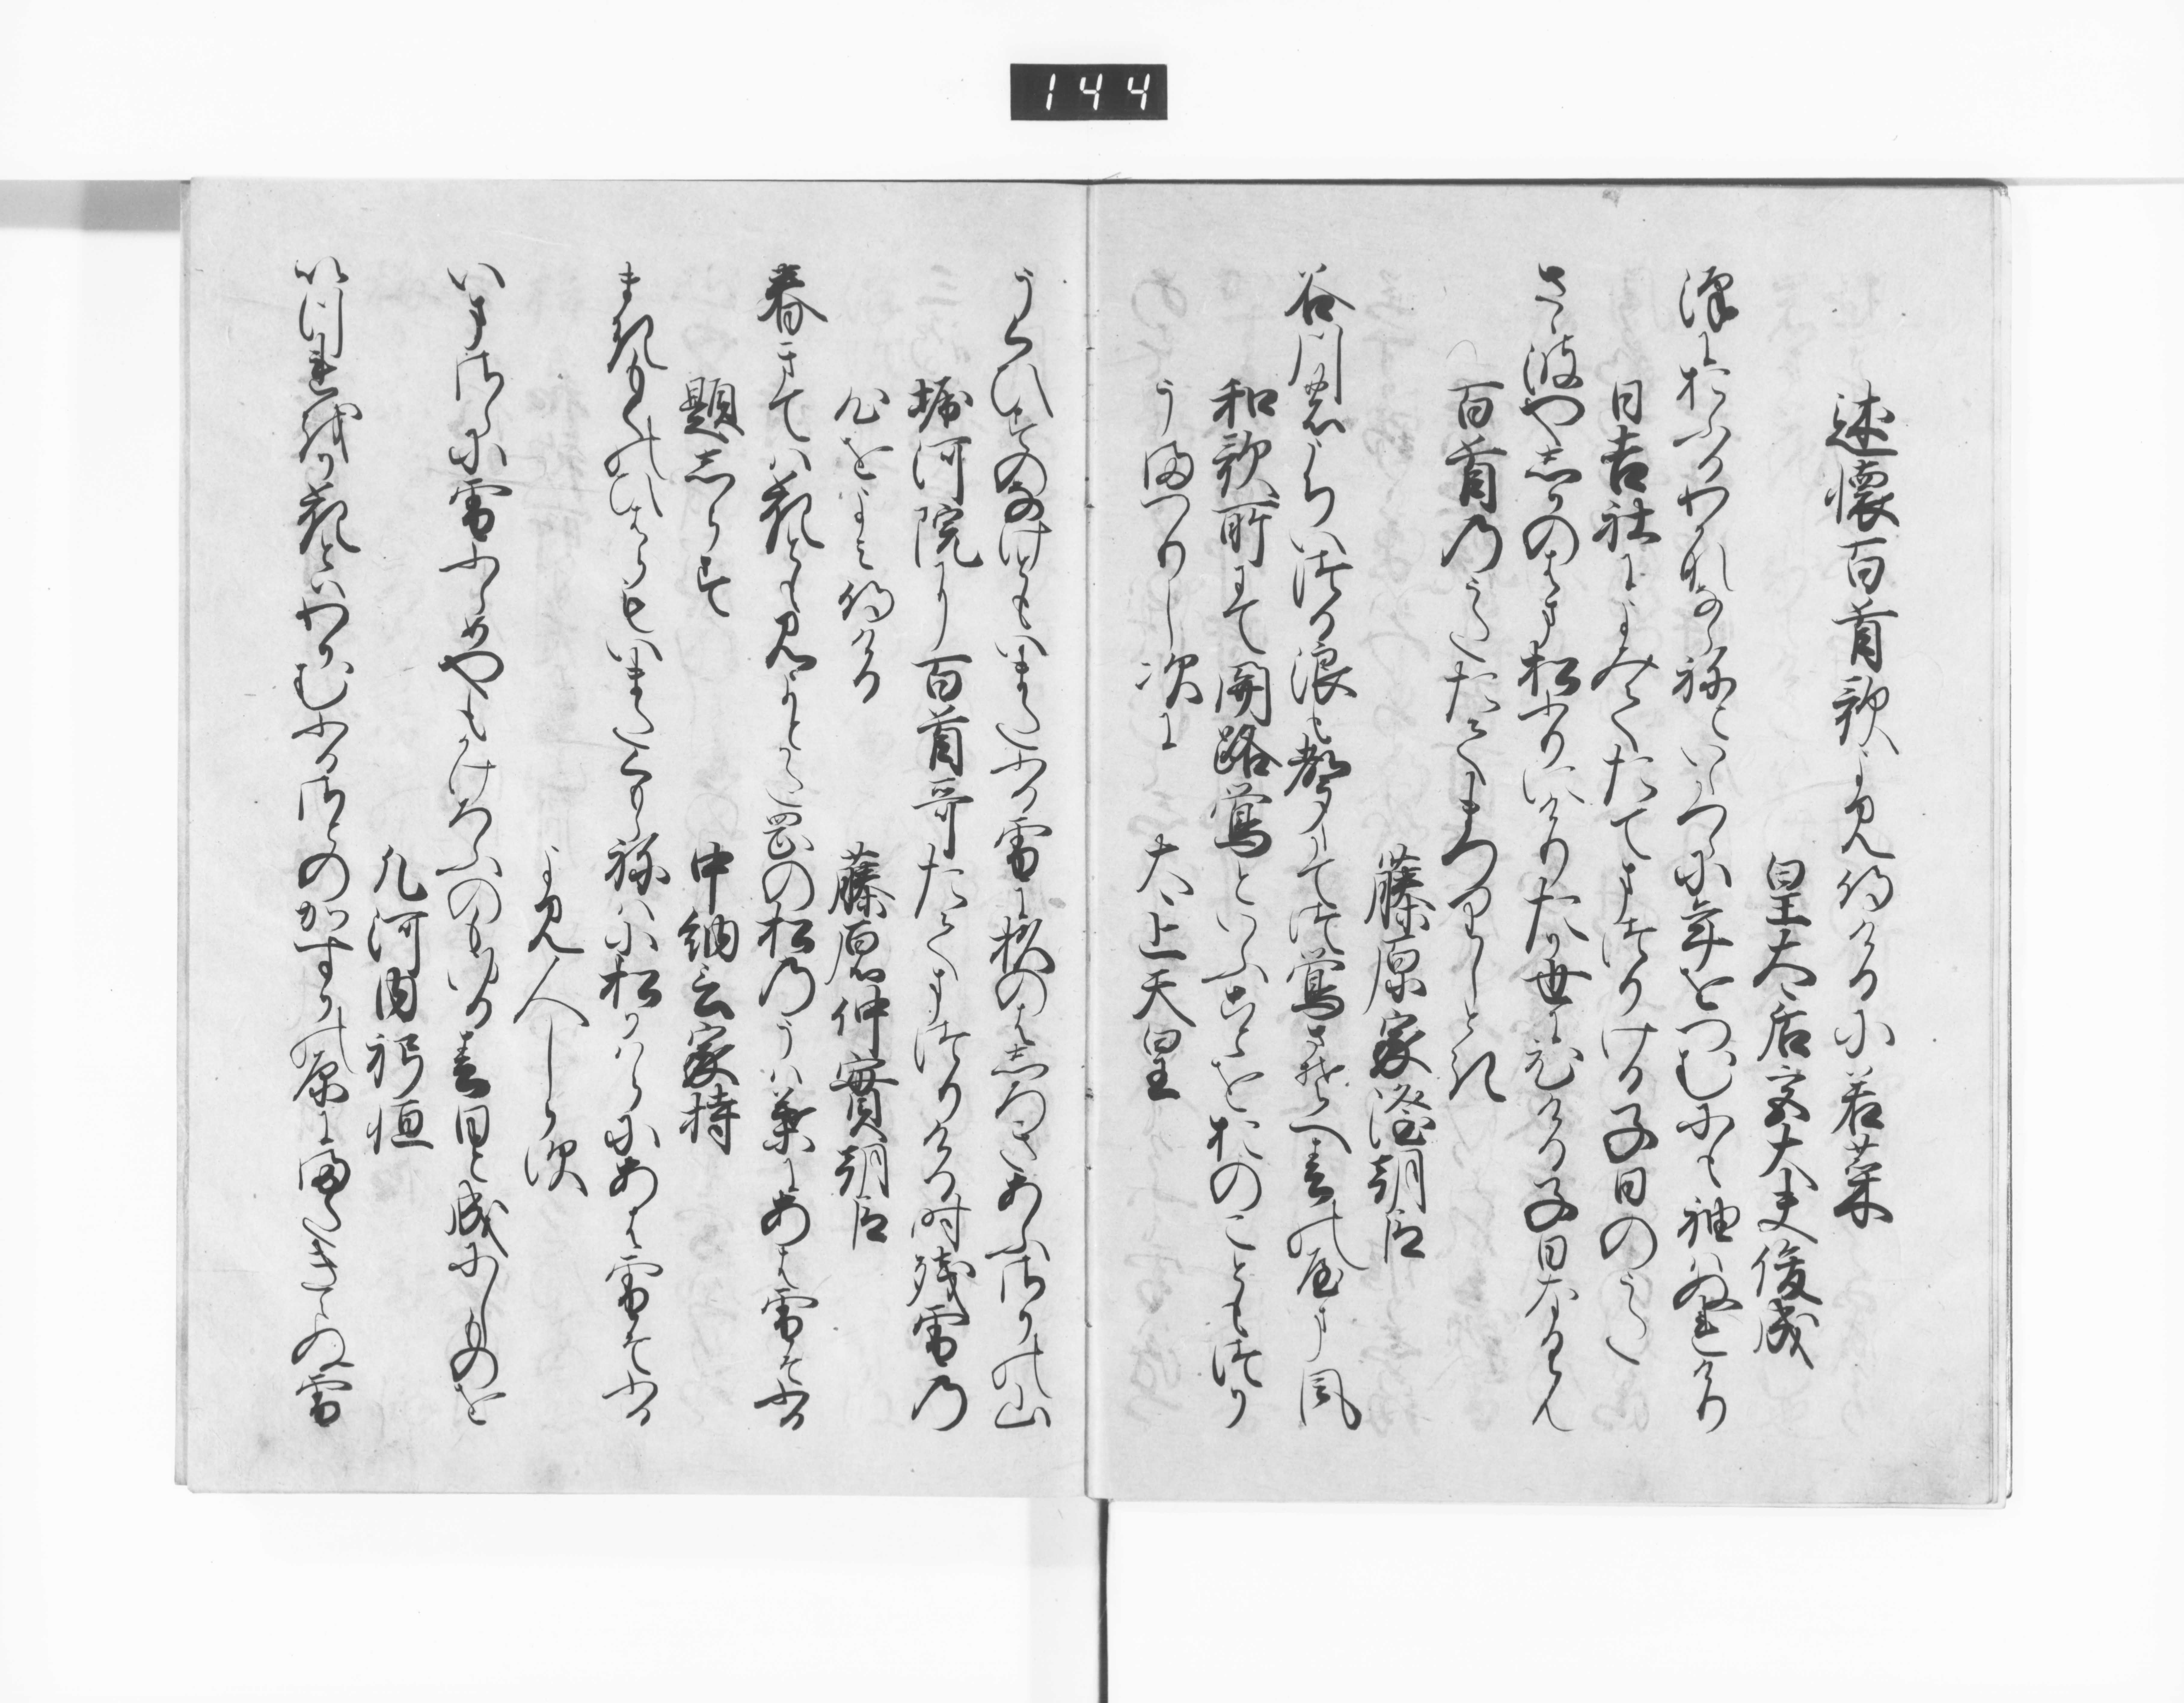 述懐百首歌よみ侍けるに若菜
皇太后宮大夫俊成
沢におふるわかなならねといたつらに年をつむにも袖はぬれけり
日吉社によみてたてまつりける子日のうた
さゝ波や志かのはま松ふりにけりたか世にひける子日なるらん
百首乃うたたてまつりしとき
藤原家隆朝臣
谷川のうちいつる浪も声たてつ鶯さそへ春の屋ま風
和歌所にて関路鶯といふことをおのこともつか
うまつりし次に　太上天皇
うくひすのなけともいまたふる雪に杉のはしろきあふさかの山
堀河院に百首哥たてまつりける時残雪乃
心をよみ侍ける　藤原仲実朝臣
春きては花とも見よとかた岡の松乃うは葉にあは雪そふる
題しらす　中納言家持
まきもくのひはらのいまたくもらねは小松かはらにあは雪そふる
よみ人しらす
いまさらに雪ふらめやもかけろふのもゆる春日と成にしものを
凡河内躬恒
いつれをか花とはわかむふるさとのかすかの原にまたきえぬ雪